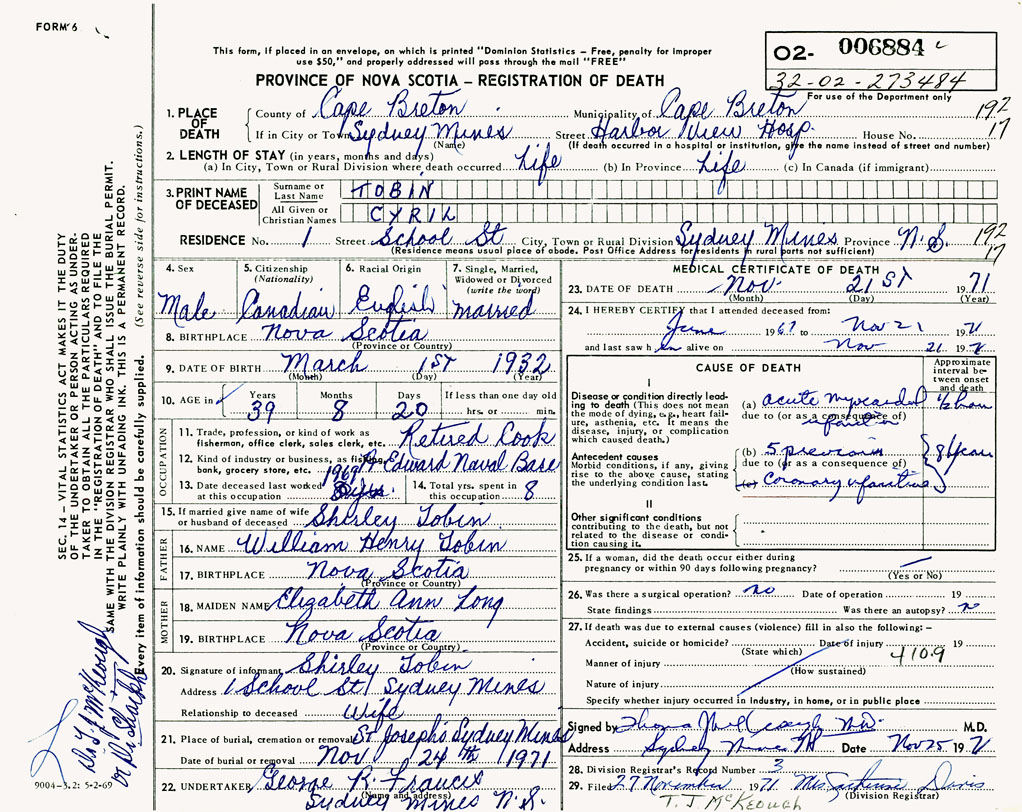 FORM 6
This form, if placed in an envelope, on which is printed "Dominion Statistics – Free, penalty for improper
use $50," and properly addressed will pass through the mail "FREE"
O2- 006884
32-02-273484
For use of the Department only
PROVINCE OF NOVA SCOTIA – REGISTRATION OF DEATH
1. PLACE OF DEATH
County of Cape Breton Municipality of Cape Breton 192
If in City or Town Sydney Mines Street Harbor View Hosp. House No. 17
(Name) (If death occurred in a hospital or institution, give the name instead of street and number)
2. LENGTH OF STAY (in years, months and days)
(a) In City, Town or Rural Division where death occurred Life (b) In Province Life (c) In Canada (if immigrant)
3. PRINT NAME OF DECEASED
Surname or Last Name TOBIN
All Given or Christian Names CYRIL
RESIDENCE No. 1 Street School St City, Town or Rural Division Sydney Mines Province N.S. 192
17
(Residence means usual place of abode. Post Office Address for residents in rural parts not sufficient)
4. Sex
Male
5. Citizenship
(Nationality)
Canadian
6. Racial Origin
English
7. Single, Married,
Widowed or Divorced
(write the word)
married
8. BIRTHPLACE Nova Scotia
(Province or Country)
9. DATE OF BIRTH March 1ST 1932
(Month) (Day) (Year)
10. AGE in
Years Months Days If less than one day old
39 8 20 hrs. or min.
OCCUPATION
11. Trade, profession, or kind of work as
fisherman, office clerk, sales clerk, etc. Retired Cook
12. Kind of industry or business, as fishing,
bank, grocery store, etc. Edward Naval Base
13. Date deceased last worked
at this occupation 1969
14. Total yrs. spent in
this occupation 8
15. If married give name of wife
or husband of deceased Shirley Tobin
FATHER
16. NAME William Henry Tobin
17. BIRTHPLACE Nova Scotia
(Province or Country)
MOTHER
18. MAIDEN NAME Elizabeth Ann Long
19. BIRTHPLACE Nova Scotia
(Province or Country)
20. Signature of informant Shirley Tobin
Address 1 School St. Sydney Mines
Relationship to deceased Wife
21. Place of burial, cremation or removal St. Joseph's Sydney Mines
Date of burial or removal Nov 24th 1971
22. UNDERTAKER George R. Francis
(Name and address)
Sydney Mines N.S.
MEDICAL CERTIFICATE OF DEATH
23. DATE OF DEATH Nov. 21ST 1971
(Month) (Day) (Year)
24. I HEREBY CERTIFY that I attended deceased from:
June 1967 to Nov 21 1971
and last saw him alive on Nov 21 1971
CAUSE OF DEATH
Approximate
interval between
onset
and death
I
Disease or condition directly leading
to death (This does not mean
the mode of dying, e.g., heart failure,
asthenia, etc. It means the
disease, injury, or complication
which caused death.)
(a) acute myocardial 1/2 hour
due to (or as a consequence of)
infarction
Antecedent causes
Morbid conditions, if any, giving
rise to the above cause, stating
the underlying condition last.
(b) 5 previous 8 years
due to (or as a consequence of)
(c) Coronary
II
Other significant conditions
contributing to the death, but not
related to the disease or condition
causing it.
25. If a woman, did the death occur either during
pregnancy or within 90 days following pregnancy?
(Yes or No)
26. Was there a surgical operation? no Date of operation 19
State findings Was there an autopsy? no
27. If death was due to external causes (violence) fill in also the following: –
Accident, suicide or homicide? Date of injury 19
(State which)
410.9
Manner of injury
(How sustained)
Nature of injury
Specify whether injury occurred in industry, in home, or in public place
Signed by M.D.
Address Sydney Mines NS Date Nov 25 1971
28. Division Registrar's Record Number 3
29. Filed 27 November 1971 Davis
(Division Registrar)
T. J. McKEOUGH
SEC. 14 – VITAL STATISTICS ACT MAKES IT THE DUTY
OF THE UNDERTAKER OR PERSON ACTING AS UNDERTAKER
TO OBTAIN ALL THE PARTICULARS REQUIRED
IN THE "REGISTRATION OF DEATH" AND TO FILE THE
SAME WITH THE DIVISION REGISTRAR WHO SHALL ISSUE THE BURIAL PERMIT.
WRITE PLAINLY WITH UNFADING INK. THIS IS A PERMANENT RECORD.
Every item of information should be carefully supplied. (See reverse side for instructions.)
Dr. T. J. McKeough
9004-3.2: 5-2-69